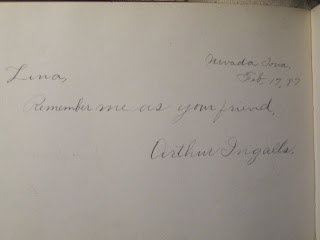 Nevada Iowa,
Feb, 17, 87
Lina,
Remember me as your friend,
Arthur Ingalls.